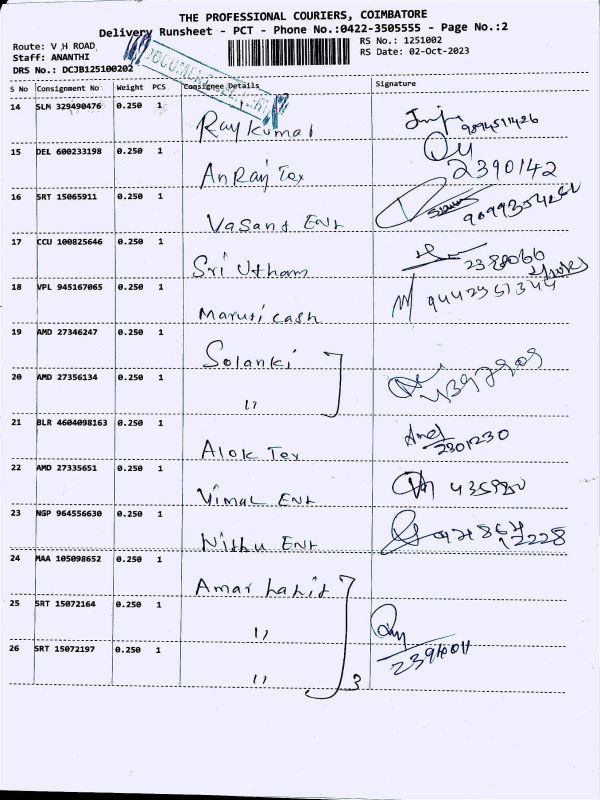 THE PROFESSIONAL COURIERS, COIMBATORE
Delivery Runsheet - PCT - Phone No.:0422-3505555 - Page No.:2
Route: V H ROAD
RS No.: 1251002
Staff: ANANTHI
RS Date: 02-Oct-2023
DRS No.: DCJB125100202
S No Consignment No Weight PCS Consignee Details Signature
14 SLM 329490476 0.250 1 Raykumal
15 DEL 600233198 0.250 1 AnRaj Tex 2390142
16 SRT 15065911 0.250 1 Vasant Ent
17 CCU 100825646 0.250 1 Sri Utham
18 VPL 945167065 0.250 1 Maruti cash
19 AMD 27346247 0.250 1 Solanki
20 AMD 27356134 0.250 1 "
21 BLR 4604098163 0.250 1 Alok Tex 2301230
22 AMD 27335651 0.250 1 Vimal Ent
23 NGP 964556630 0.250 1 Nithu Ent
24 MAA 105098652 0.250 1 Amar
25 SRT 15072164 0.250 1 "
26 SRT 15072197 0.250 1 " 3